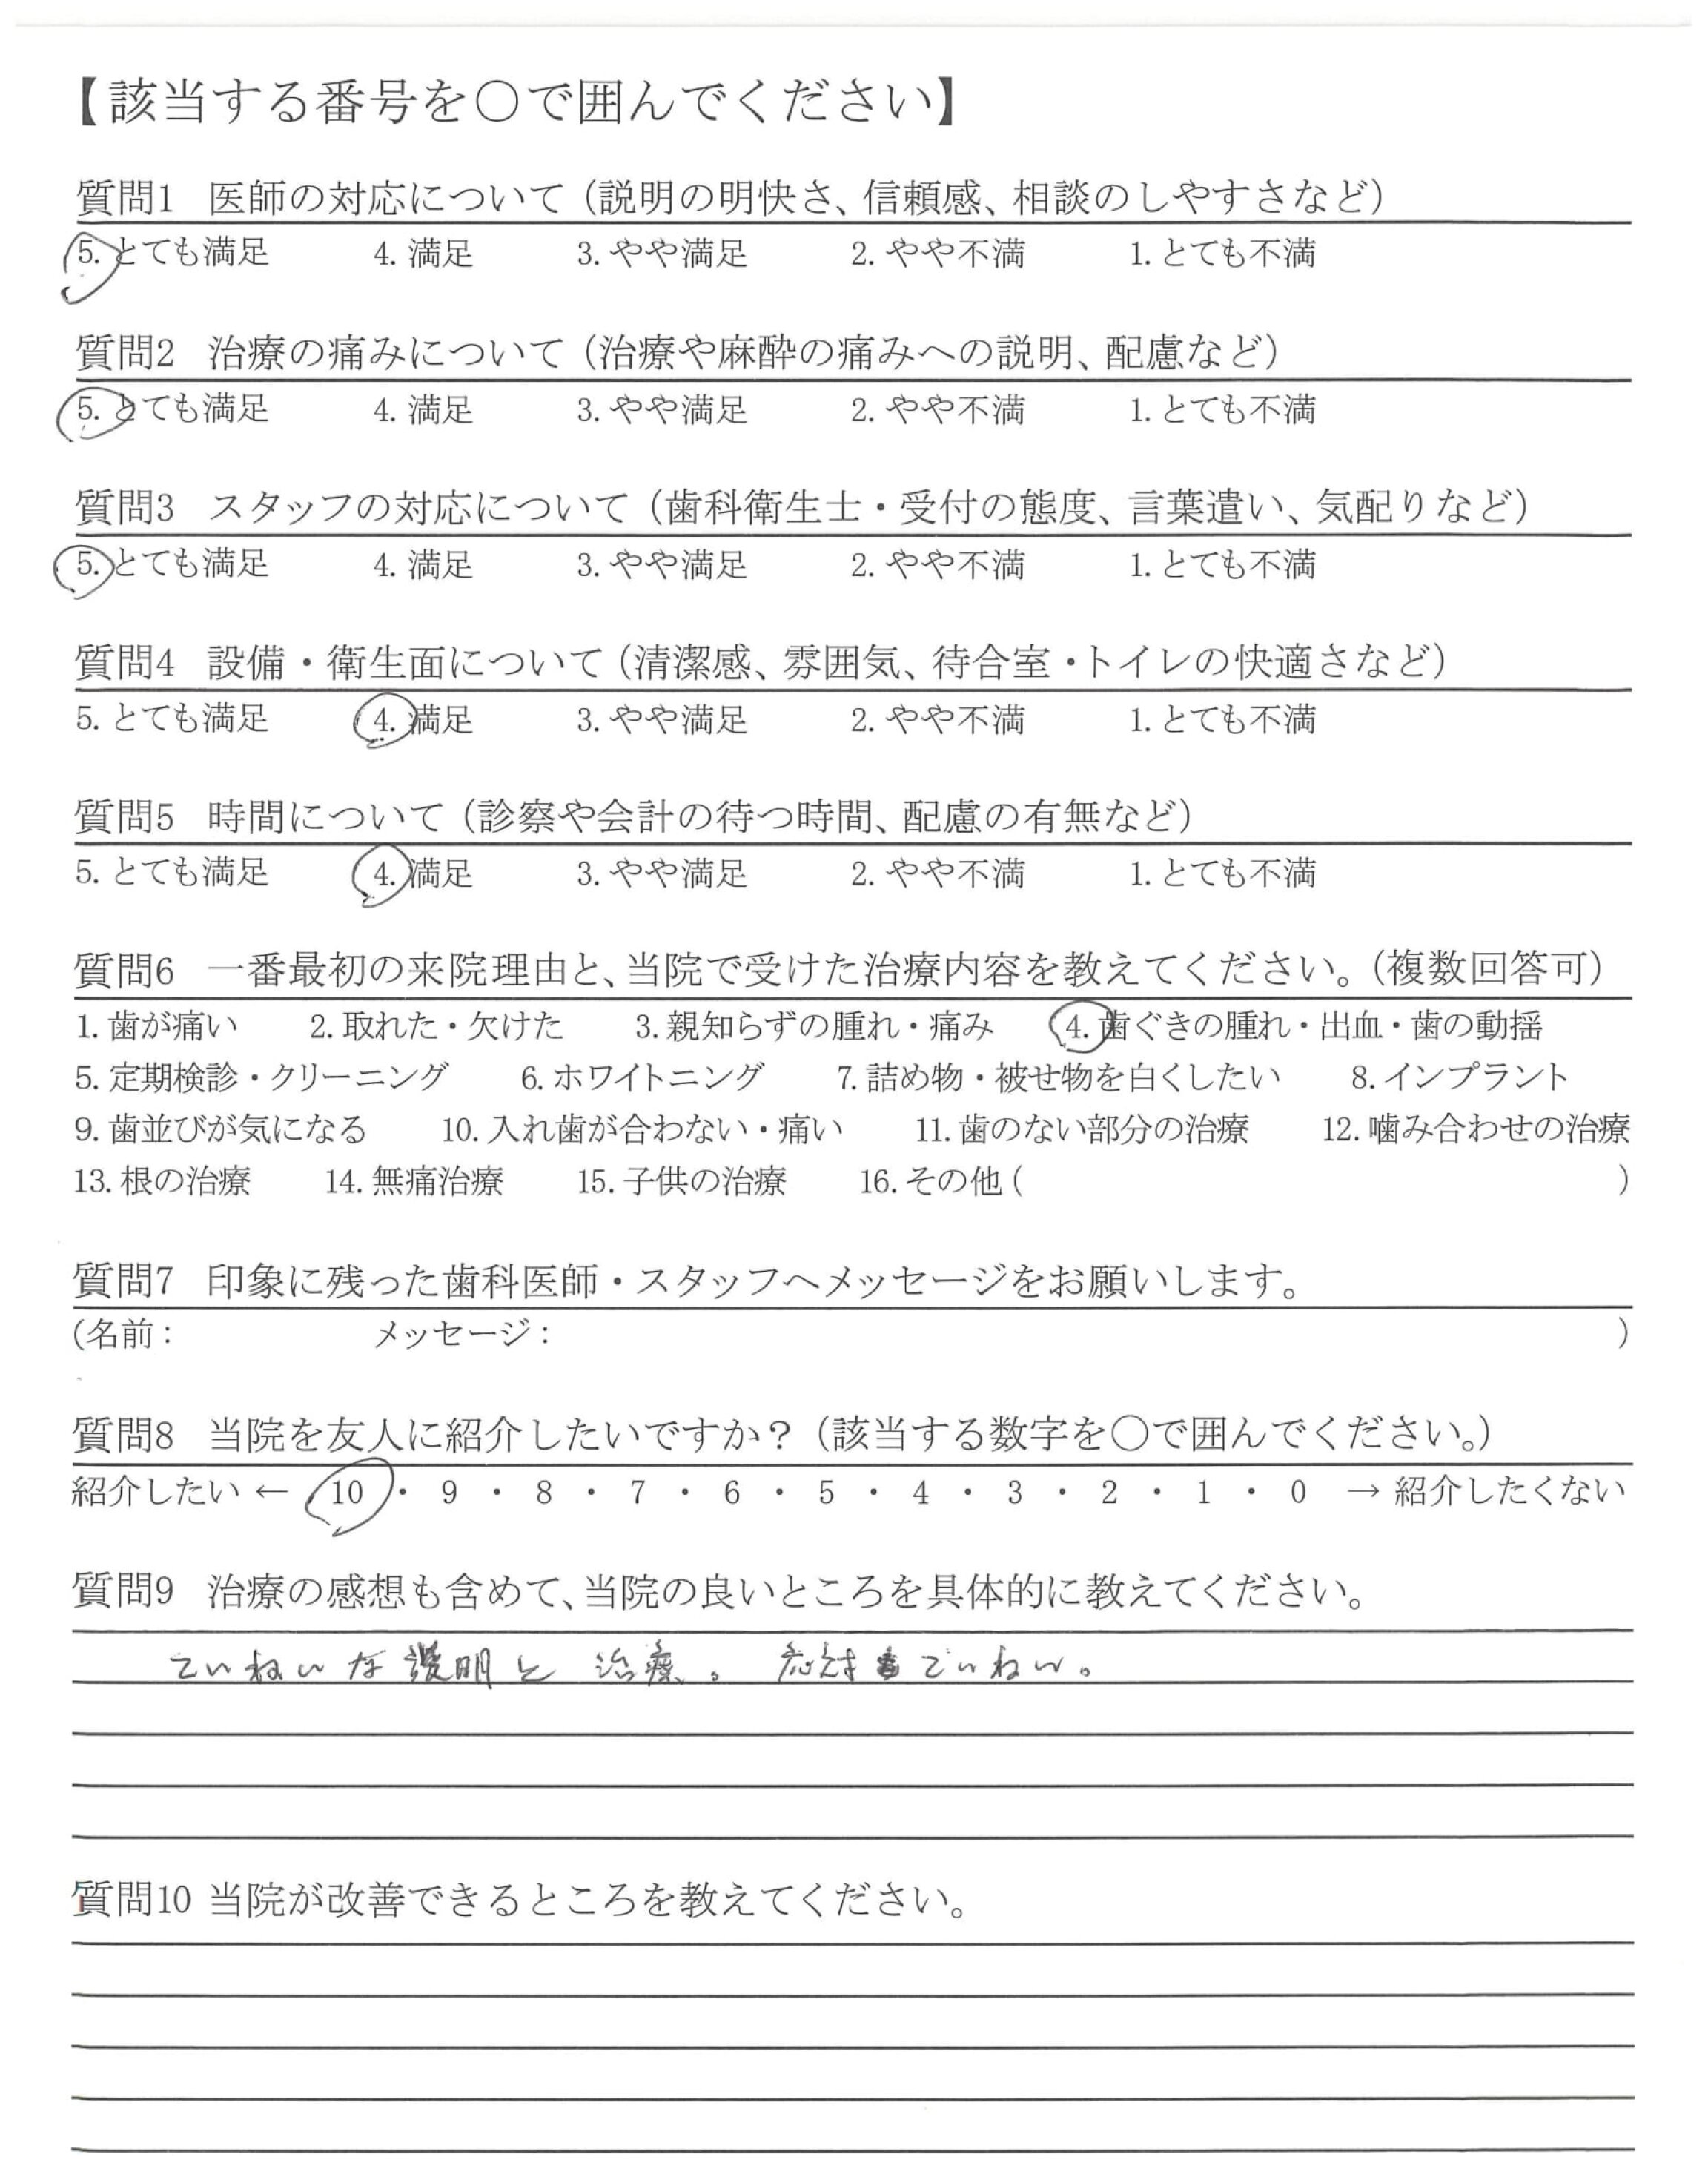 【該当する番号を〇で囲んでください】
質問1 医師の対応について（説明の明快さ、信頼感、相談のしやすさなど）
5. とても満足 4. 満足 3. やや満足 2. やや不満 1. とても不満
質問2 治療の痛みについて（治療や麻酔の痛みへの説明、配慮など）
5. とても満足 4. 満足 3. やや満足 2. やや不満 1. とても不満
質問3 スタッフの対応について（歯科衛生士・受付の態度、言葉遣い、気配りなど）
5. とても満足 4. 満足 3. やや満足 2. やや不満 1. とても不満
質問4 設備・衛生面について（清潔感、雰囲気、待合室・トイレの快適さなど）
5. とても満足 4. 満足 3. やや満足 2. やや不満 1. とても不満
質問5 時間について（診察や会計の待つ時間、配慮の有無など）
5. とても満足 4. 満足 3. やや満足 2. やや不満 1. とても不満
質問6 一番最初の来院理由と、当院で受けた治療内容を教えてください。（複数回答可）
1. 歯が痛い 2. 取れた・欠けた 3. 親知らずの腫れ・痛み 4. 歯ぐきの腫れ・出血・歯の動揺
5. 定期検診・クリーニング 6. ホワイトニング 7. 詰め物・被せ物を白くしたい 8. インプラント
9. 歯並びが気になる 10. 入れ歯が合わない・痛い 11. 歯のない部分の治療 12. 噛み合わせの治療
13. 根の治療 14. 無痛治療 15. 子供の治療 16. その他（ ）
質問7 印象に残った歯科医師・スタッフへメッセージをお願いします。
（名前： メッセージ： ）
質問8 当院を友人に紹介したいですか？（該当する数字を〇で囲んでください。）
紹介したい ← 10 ・ 9 ・ 8 ・ 7 ・ 6 ・ 5 ・ 4 ・ 3 ・ 2 ・ 1 ・ 0 → 紹介したくない
質問9 治療の感想も含めて、当院の良いところを具体的に教えてください。
ていねいな説明と治療。応対もていねい。
質問10 当院が改善できるところを教えてください。